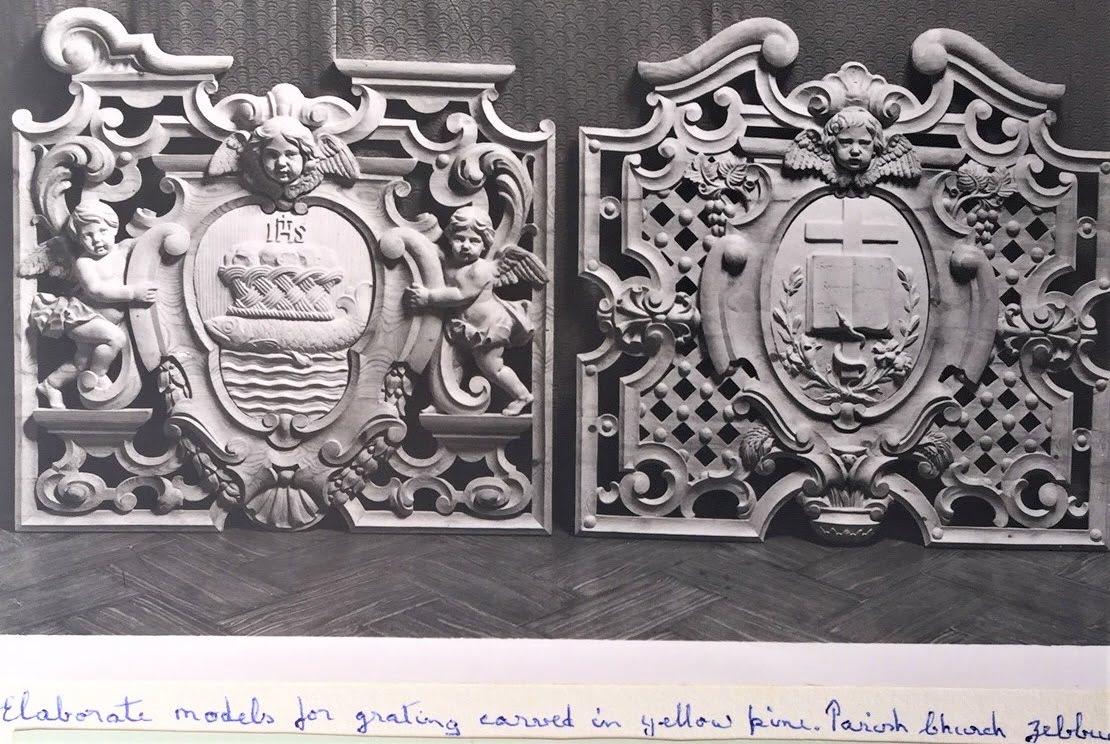 IHS
Elaborate models for grating carved in yellow pine. Parish Church Zebbu